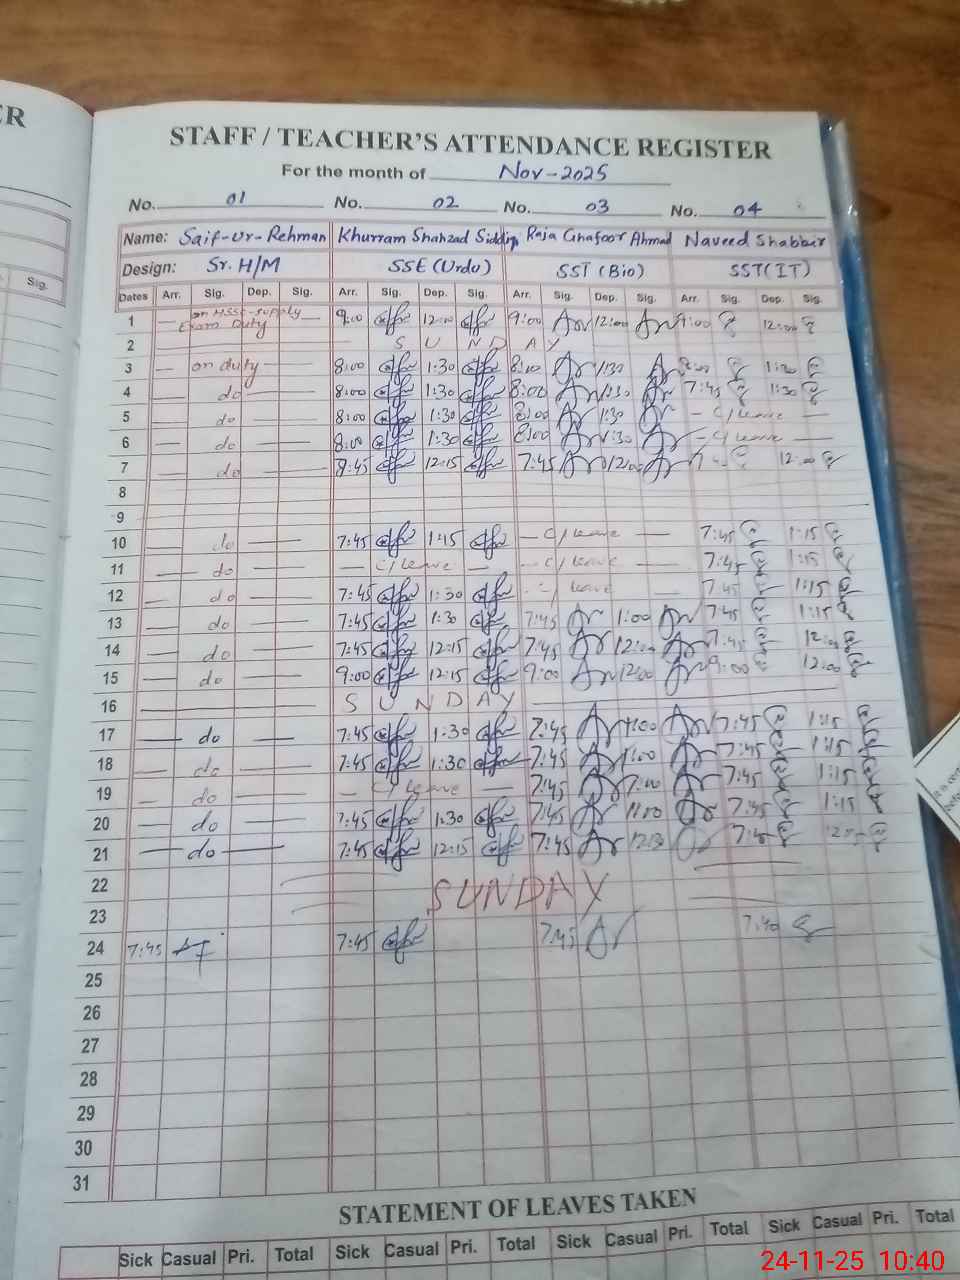 ER
Sig.
STAFF / TEACHER'S ATTENDANCE REGISTER
For the month of Nov-2025
No. 01 No. 02 No. 03 No. 04
Name: Saif-Ur-Rehman Khurram Shahzad Raja Ghafoor Ahmad Naveed Shabbir
Design: Sr. H/M SSE (Urdu) SST (Bio) SST (IT)
Dates Arr. Sig. Dep. Sig. Arr. Sig. Dep. Sig. Arr. Sig. Dep. Sig. Arr. Sig. Dep. Sig.
1 on HSSC-supply Exam Duty 9:00 12:00 9:00 12:00 9:00 12:00
2 SUNDAY
3 on duty 8:00 1:30 8:00 1:30
4 do 8:00 1:30 8:00 1:30 7:45 1:30
5 do 8:00 1:30 8:00 1:30 - C/Leave -
6 do 8:00 1:30 8:00 1:30 - C/Leave -
7 do 8:45 12:15 7:45 12:00 12:00
8
9
10 do 7:45 1:15 - C/Leave - 7:45 1:15
11 do - C/Leave - - C/Leave - 7:45 1:15
12 do 7:45 1:30 leave 7:45 1:15
13 do 7:45 1:30 7:45 1:00 7:45 1:15
14 do 7:45 12:15 7:45 12:00 7:45 12:00
15 do 9:00 12:15 9:00 12:00 9:00 12:00
16 SUNDAY
17 do 7:45 1:30 7:45 1:00 7:45 1:15
18 do 7:45 1:30 7:45 1:00 7:45 1:15
19 do - C/Leave - 7:45 7:45 1:15
20 do 7:45 1:30 7:45 7:45 1:15
21 do 7:45 12:15 7:45 7:45
22
SUNDAY
23
24 7:45 7:45 7:45 7:40
25
26
27
28
29
30
31
STATEMENT OF LEAVES TAKEN
Sick Casual Pri. Total Sick Casual Pri. Total Sick Casual Pri. Total Sick Casual Pri. Total
24-11-25 10:40